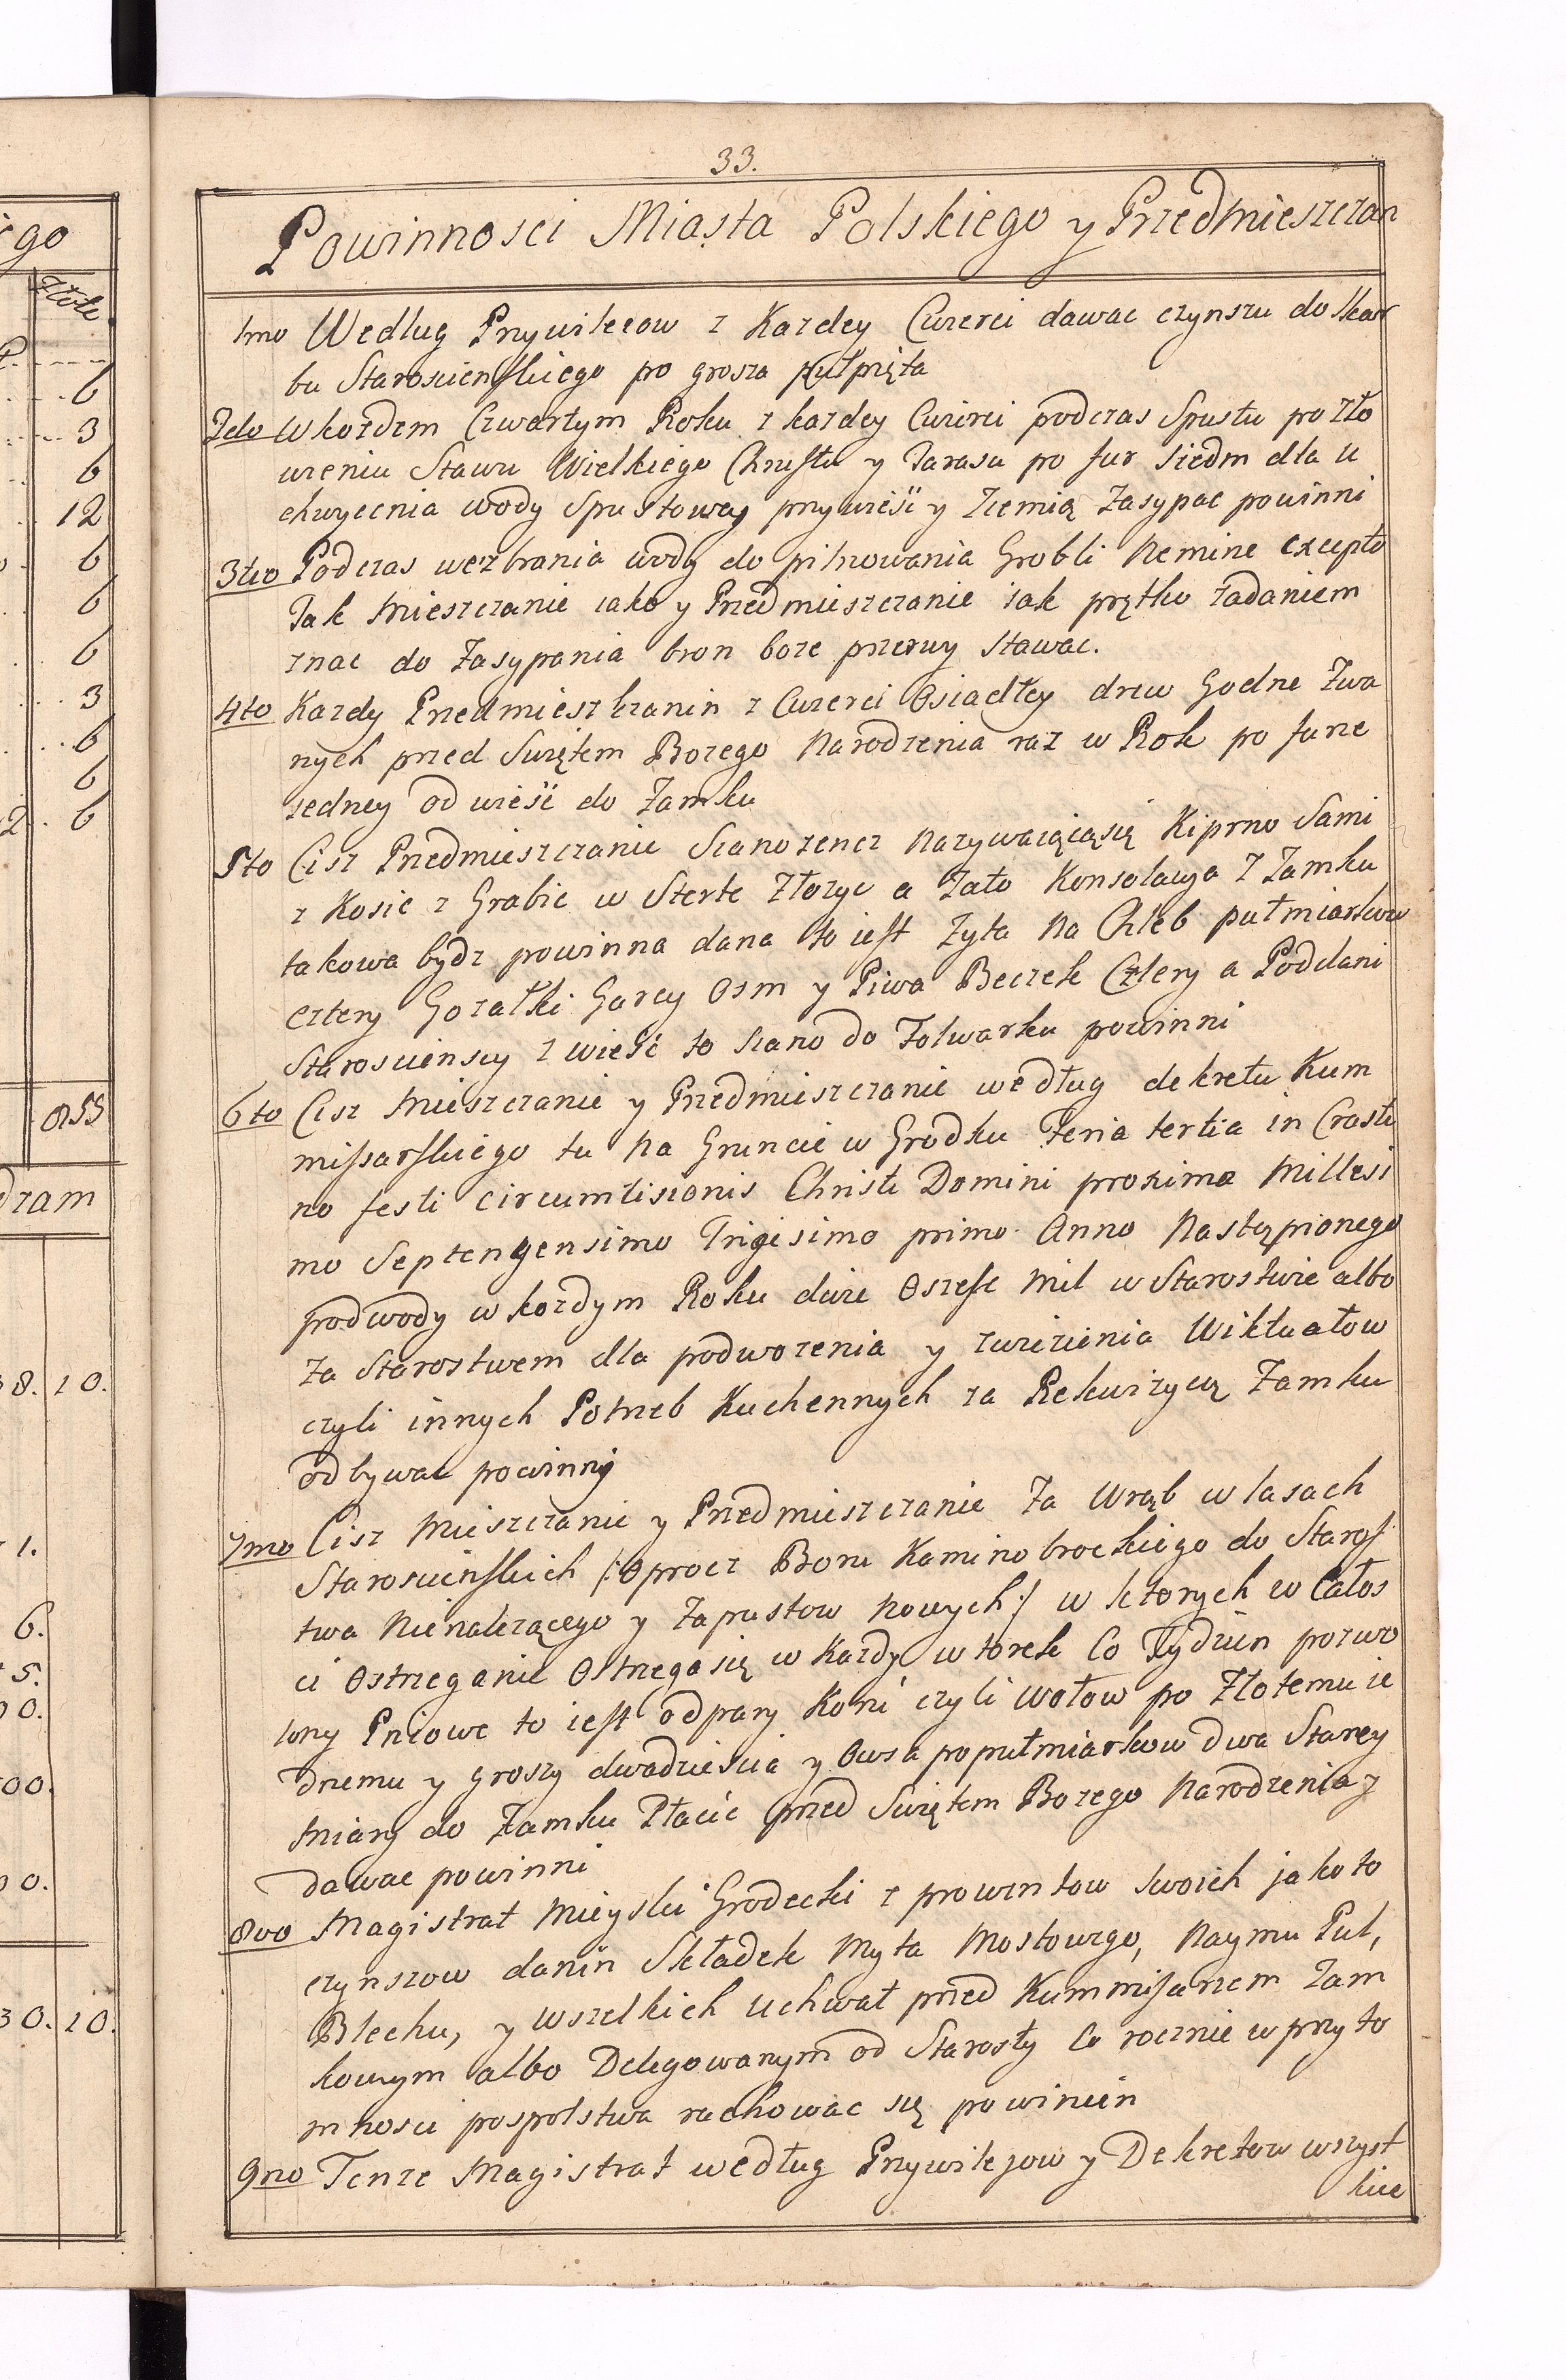 33.
Powinnosci Miasta Polskiego y Przedmieszczan
1mo Według Przywileiow z Kazdey Cwierci dawac czynszu do Skar
bu Staroscienskiego po grosza pułpięta
2do W kozdem Czwartym Roku z kazdey Cwierci podczas Spustu po zło
wieniu Stawu Wielkiego Chrustu y Tarasu po fur siedm dla u
chwycenia wody Spustowey przywieść y Ziemią Zasypac powinni
3tio Podczas wezbrania wody do pilnowania Grobli Nemine excepto
Tak Mieszczanie iako y Przedmieszczanie iak prętko zadaniem
znac do Zasypania bron boze przerwy stawac.
4to Kazdy Przedmieszczanin z Cwierci Osiadłey drew Godne Zwa
nych przed Swiętem Bozego Narodzenia raz w Rok po furze
iedney odwieść do Zamku
5to Cisz Przedmieszczanie Sianozencz Nazywaiącąsię Kiprno Sami
z Kosic z Grabic w Sterte Złozyc a Zato Konsolacya Z Zamku
takowa bydz powinna dana to iest Zyta Na Chleb pułmiarkow
cztery Gorałki Garcy Osm y Piwa Beczek Cztery a Poddani
Staroscienscy Zwieść to siano do Folwarku powinni
6to Cisz Mieszczanie y Przedmieszczanie według dekretu Kum
missarskiego tu Na Gruncie w Grodku Feria tertia in Crasti
no festi circumtisionis Christi Domini proxima Millesi
mo Septengensimo Trigesimo primo Anno Nastąpionego
podwody w kozdym Roku dwie Oszesc mil w Starostwie albo
Za Starostwem dla podwozenia y zwiezienia Wiktuałow
czyli innych Potrzeb Kuchennych za Rekwizycą Zamku
odbywac powinny
7mo Cisz Mieszczanie y Przedmieszczanie Za Wrąb w lasach
Staroscieńskich /:oprocz Boru Kaminobrockiego do Staros
twa Nienalezącego y Zapustow Nowych:/ w ktorych w Całos
ci Ostrzeganie Ostrzega się w Kazdy wtorek Co Tydzien pozwo
lony Pniowe to iest od pary Koni czyli Wołow po Złotemu ie
dnemu y groszy dwadziescia y Owsa po pułmiarkow dwa Starey
Miary do Zamku Płacic przed Swiętem Bozego Narodzenia y
dawac powinni
8vo Magistrat Mieyski Grodecki z prowentow swoich jako to
czynszow danin Składek Myta Mostowego, Naymu Pul,
Blechu, y wszelkich uchwał przed Kummisarzem Zam
kowym albo Delegowanym od Starosty Co rocznie w przyto
mnosci pospolstwa rachowac się powinien
9no Tenze Magistrat według Przywilejow y Dekretow wszyst
kie